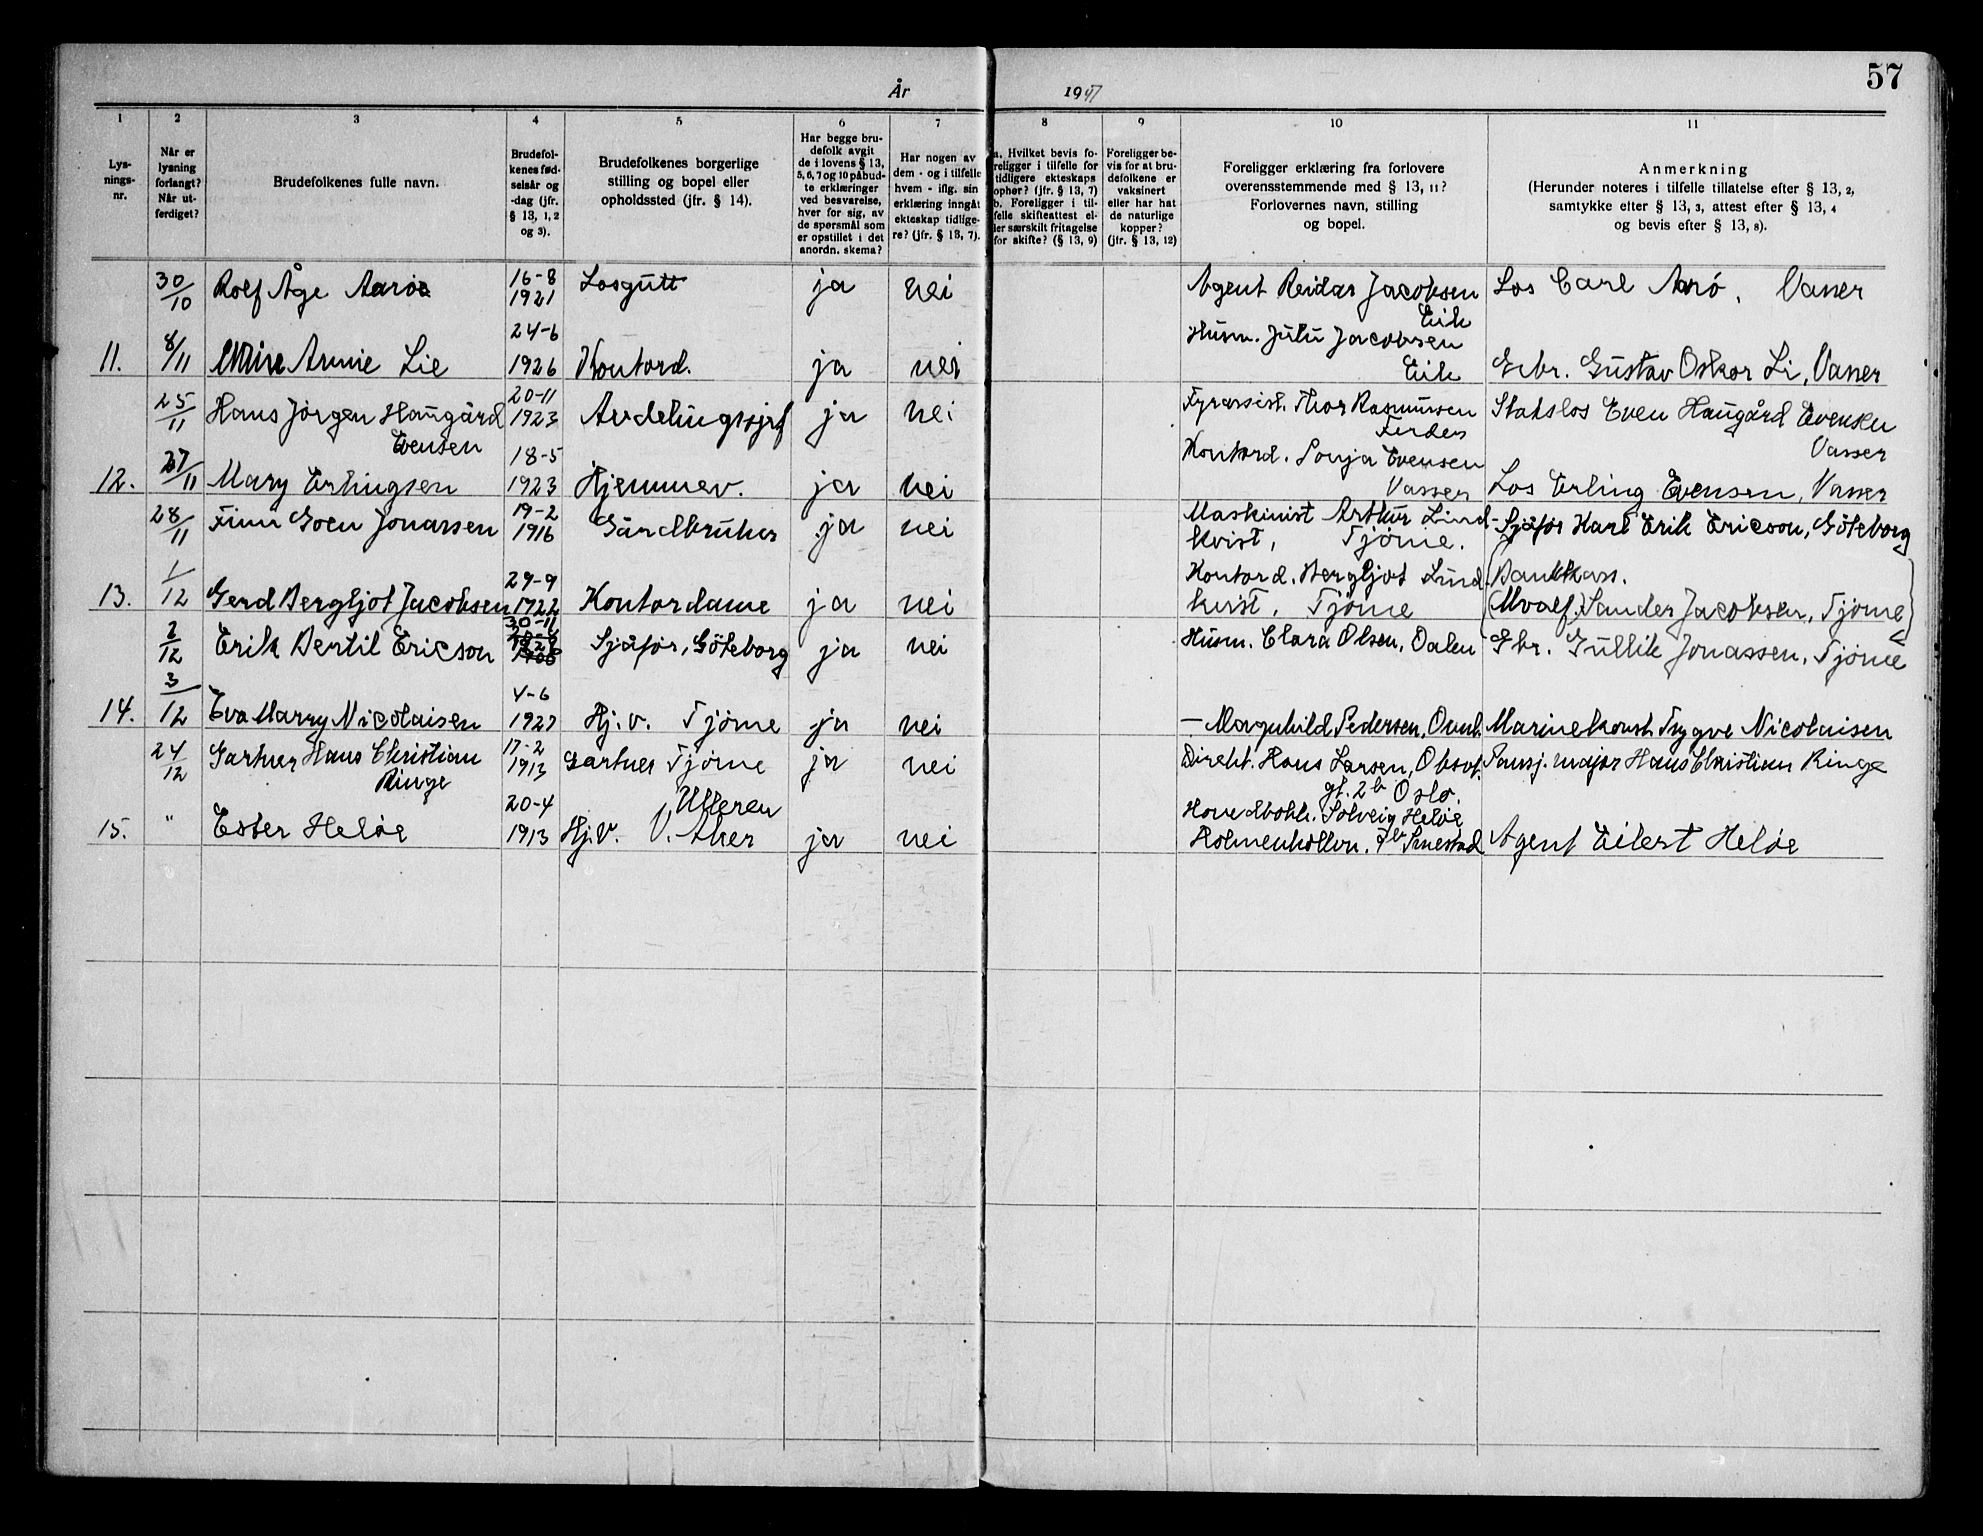 57
År 1947
1 2 3 4 5 6 7 8 9 10 11
Lys-
nings-
nr.
Når er
lysning
forlangt?
Når ut-
ferdiget?
Brudefolkenes fulle navn.
Brudefol-
kenes fød-
selsår og
-dag (jfr.
§ 13, 1, 2
og 3).
Brudefolkenes borgerlige
stilling og bopel eller
opholdssted (jfr. § 14).
Har begge bru-
defolk avgit
de i lovens § 13,
5, 6, 7 og 10 påbud-
te erklæringer
ved besvarelse,
hver for sig, av
de spørsmål som
er opstillet i det
anordn. skema?
Har nogen av
dem - og i tilfelle
hvem - iflg. sin
erklæring inngåt
ekteskap tidlige-
re? (jfr. § 13, 7).
a. Hvilket bevis fo-
religger i tilfelle for
tidligere ekteskaps
ophør? (jfr. § 13, 7)
b. Foreligger i til-
felle skifteattest el-
ler særskilt fritagelse
for skifte? (§ 13, 9)
Foreligger be-
vis for at bru-
defolkene er
vaksinert
eller har hat
de naturlige
kopper?
(jfr. § 13, 12)
Foreligger erklæring fra forlovere
overensstemmende med § 13, 11?
Forlovernes navn, stilling
og bopel.
Anmerkning
(Herunder noteres i tilfelle tillatelse efter § 13, 2,
samtykke efter § 13, 3, attest efter § 13, 4
og bevis efter § 13, 8).
30/10 Rolf Åge Aarøe 16-8 1921 Losgutt ja nei Agent Reidar Jacobsen Eik Los Carl Arrö, Vasser
11. 8/11 Annie Lie 24-6 1926 Kontord. ja nei Husm. Julu Jacobsen Eik Gbr. Gustav Oskar Li, Vasser
25/11 Hans Jörgen Haugård Evensen 20-11 1923 Avdelingssjef ja nei Fyrassist. Thor Rasmussen Færder Statslos Even Haugård Evensen Vasser
12. 27/11 Mary Erlingsen 18-5 1923 Hjemmev. ja nei Kontord. Sonja Evensen Vasser Los Erling Evensen, Vasser
28/11 Finn Goen Jonassen 19-2 1916 Gårdbruker ja nei Maskinist Arthur Lind-
kvist, Tjöme. Sjåfør Karl Erik Ericson, Göteborg
13. 1/12 Gerd Bergljot Jacobsen 29-9 1922 Kontordame ja nei Kontord. Bergljot Lind-
kvist, Tjöme Bankkass.
(Mvalf.) Sander Jacobsen, Tjöme
2/12 Erik Bertil Ericson 30-11 Sjåfør, Göteborg ja nei Husm. Clara Olsen, Dalen Gbr. Gullik Jonassen, Tjöme
14. 3/12 Eva Marry Nicolaisen 4-6 1927 Hj.v. Tjöme ja nei — Magnhild Pedersen, Marinekonst. Trygve Nicolaisen
24/12 Gartner Hans Christian Ringe 17-2 1913 Gartner Tjöme ja nei Direkt. Hans Larsen, Obsvt.
gt. 2b Oslo. Pensj. major Hans Christian Ringe
15. " Ester Helöe 20-4 1913 Hj.v. Ulleren V. Aker ja nei Hovedbokh. Solveig Helöe
Holmenkollvn. 7b Smestad Agent Eilert Helöe